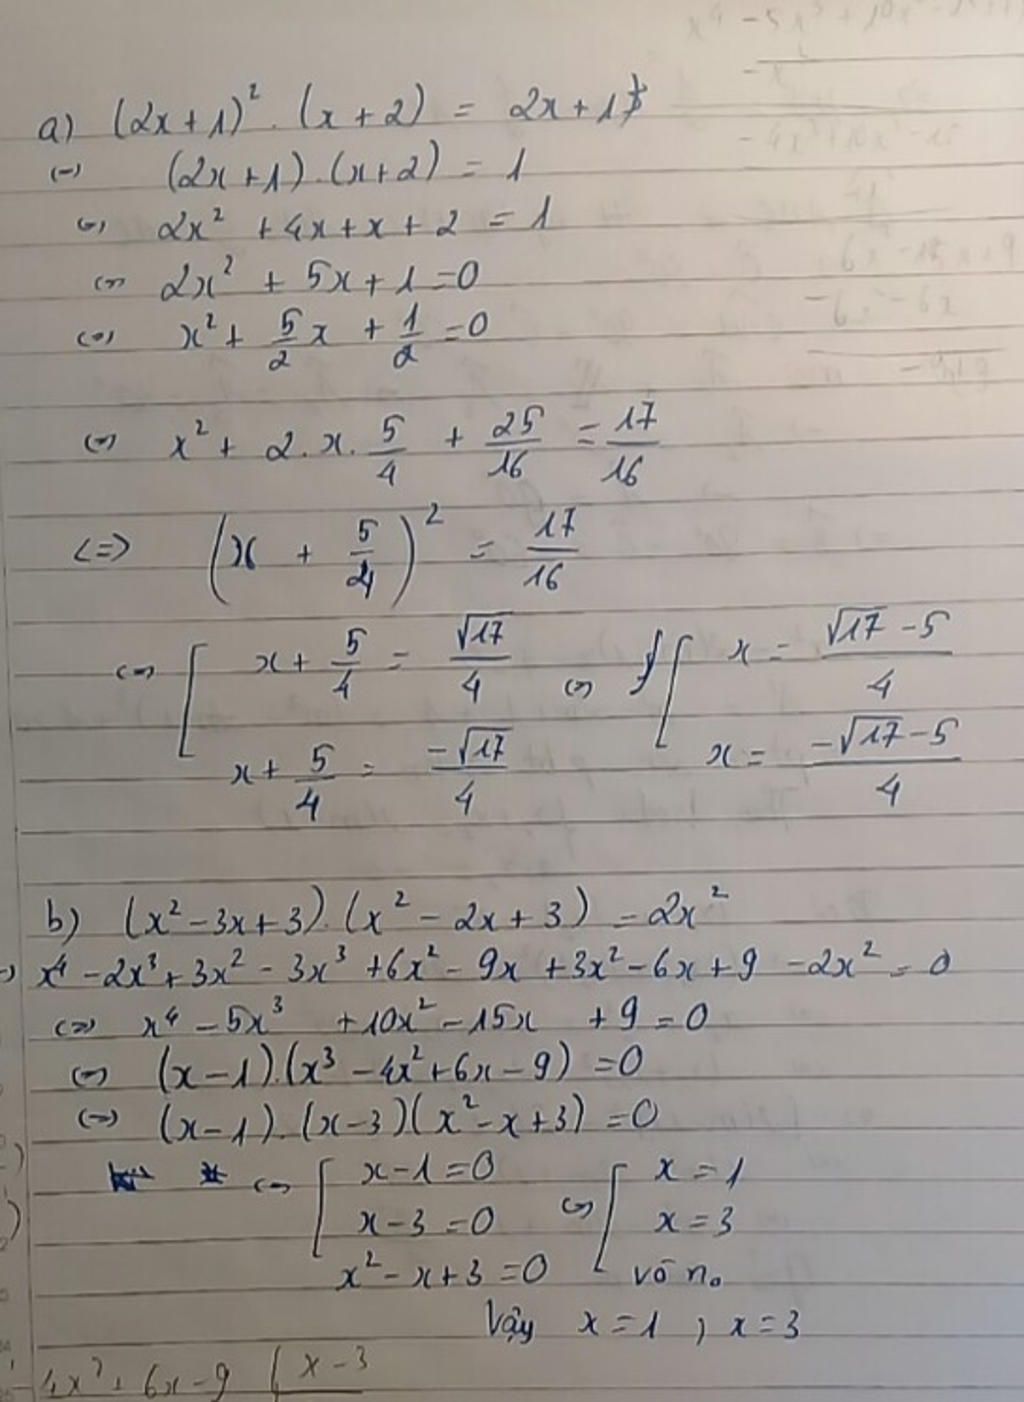 a) (2x+1)². (x+2) = 2x+1
(=) (2x+1).(x+2) = 1
(=) 2x² + 4x + x + 2 = 1
(=) 2x² + 5x + 1 = 0
(=) x² + 5/2 x + 1/2 = 0
(=) x² + 2.x. 5/4 + 25/16 = 17/16
<=> (x + 5/4)² = 17/16
(=) [ x + 5/4 = √17/4 (=) [ x = (√17 - 5)/4
x + 5/4 = -√17/4 x = (-√17 - 5)/4
b) (x² - 3x + 3).(x² - 2x + 3) = 2x²
x⁴ - 2x³ + 3x² - 3x³ + 6x² - 9x + 3x² - 6x + 9 - 2x² = 0
(=) x⁴ - 5x³ + 10x² - 15x + 9 = 0
(=) (x-1).(x³ - 4x² + 6x - 9) = 0
(=) (x-1).(x-3)(x² - x + 3) = 0
(=) [ x - 1 = 0 (=) [ x = 1
x - 3 = 0 x = 3
x² - x + 3 = 0 vô n₀
Vậy x = 1 ; x = 3
4x² + 6x - 9 x - 3